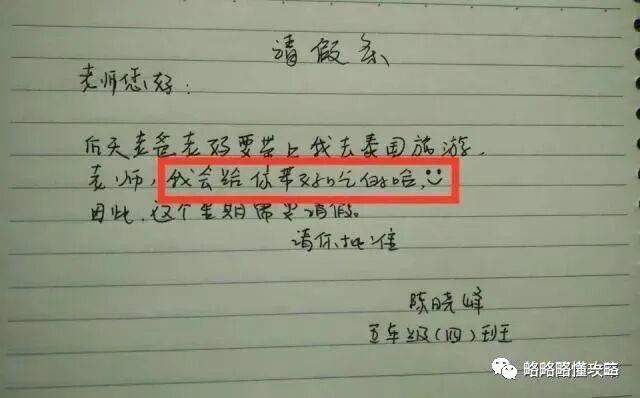 请假条
老师您好：
后天老爸老妈要带上我去泰国旅游，
老师，我会给你带好吃的哈，
因此，这个星期需要请假。
请你批准
陈晓峰
五年级(四)班
略略略懂攻略